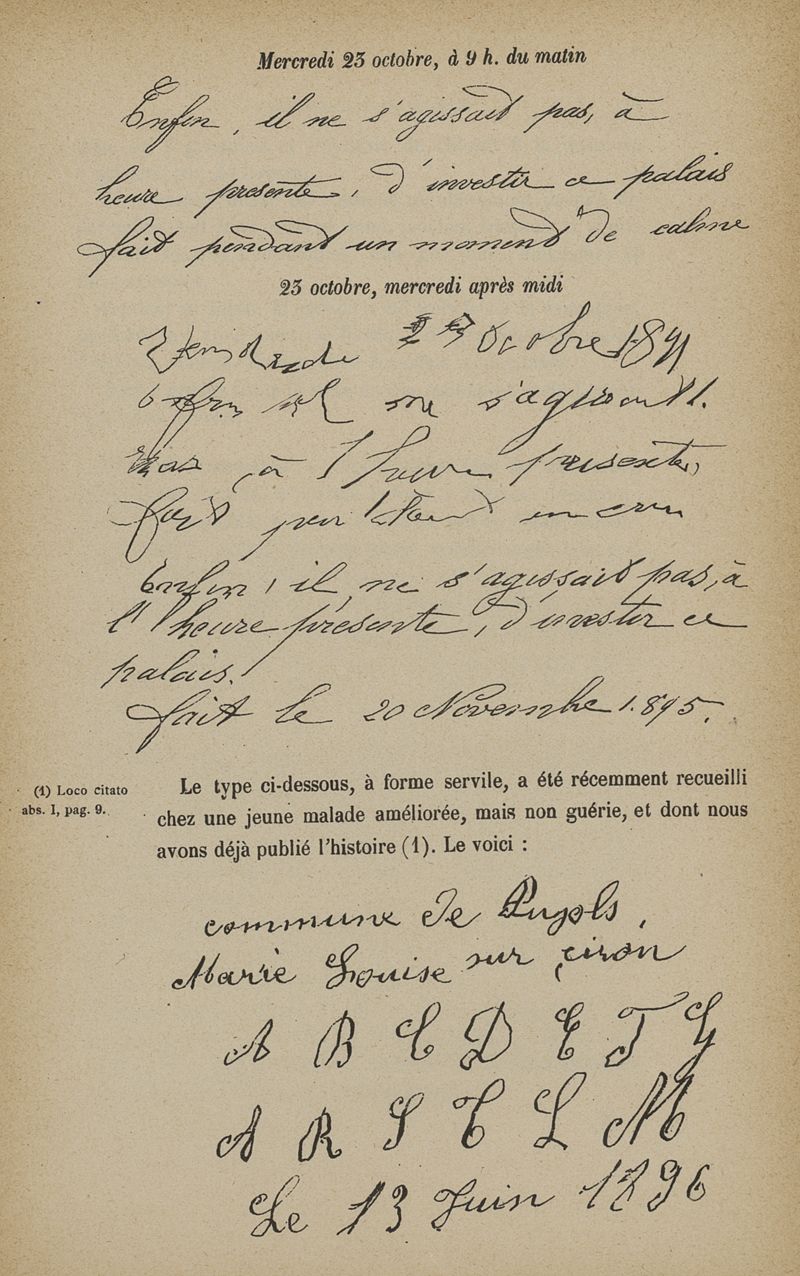 Mercredi 23 octobre, à 9 h. du matin
Enfin, il ne s'agissait pas, à
heure presente, d'investir ce palais
fait pendant un moment de calme
23 octobre, mercredi après midi
23 Octobre 1891
enfin il ne s'agissait
pas, à l'heure presente,
fait
Enfin, il ne s'agissait pas, à
l'heure présente, d'investir ce
palais.
fait le 20 Novembre 1.895.
(1) Loco citato
abs. I, pag. 9.
Le type ci-dessous, à forme servile, a été récemment recueilli
chez une jeune malade améliorée, mais non guérie, et dont nous
avons déjà publié l'histoire (1). Le voici :
commune de Pujols,
Marie Louise sur ciron
A B C D E F G
A R S T L M
Le 13 Juin 1896